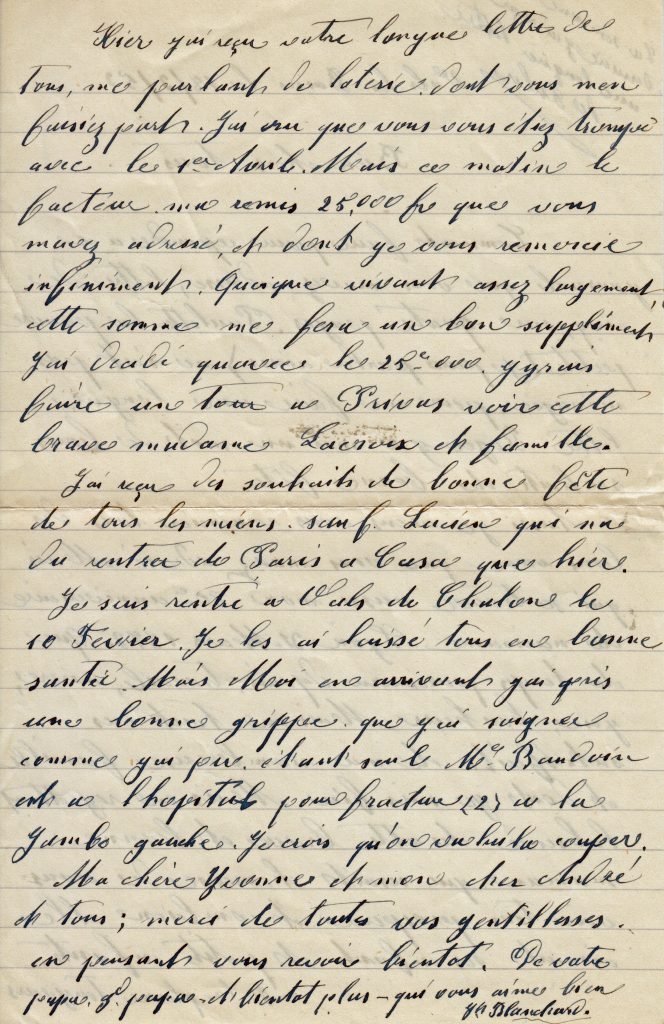 Hier j'ai reçu votre longue lettre de
tous, me parlant de loterie. dont vous men
faisiez part. J'ai cru que vous vous étiez trompé
avec le 1er Avril. Mais ce matin le
facteur ma remis 25,000 fr que vous
mavez adressé, et dont ge vous remercie
infiniment. Quoique vivant assez largement,
cette somme me fera un bon supplément
J'ai décidé quavec le 25e 000. g'yrais
faire un tour a Privas voir cette
brave madame Lacroix et famille.
J'ai reçu des souhaits de bonne fête
de tous les miens. sauf. Lucien qui na
du rentrer de Paris a Casa que hier.
Je suis rentré a Vals de Chalon le
10 Fevrier. Je les ai laissé tous en bonne
santée. Mais Moi en arrivant j'ai pris
une bonne grippe que j'ai soignée
comme j'ai pu. étant seul Mr Baudoin
est a lhopital pour fracture (2) a la
Jambe gauche. Je crois qu'on va lui la couper.
Ma chère Yvonne et mon cher André
et tous; merci de toutes vos gentillesses.
en pensant vous revoir bientot. De votre
papa, gd. papa - et bientot plus - qui vous aime bien
Blanchard.